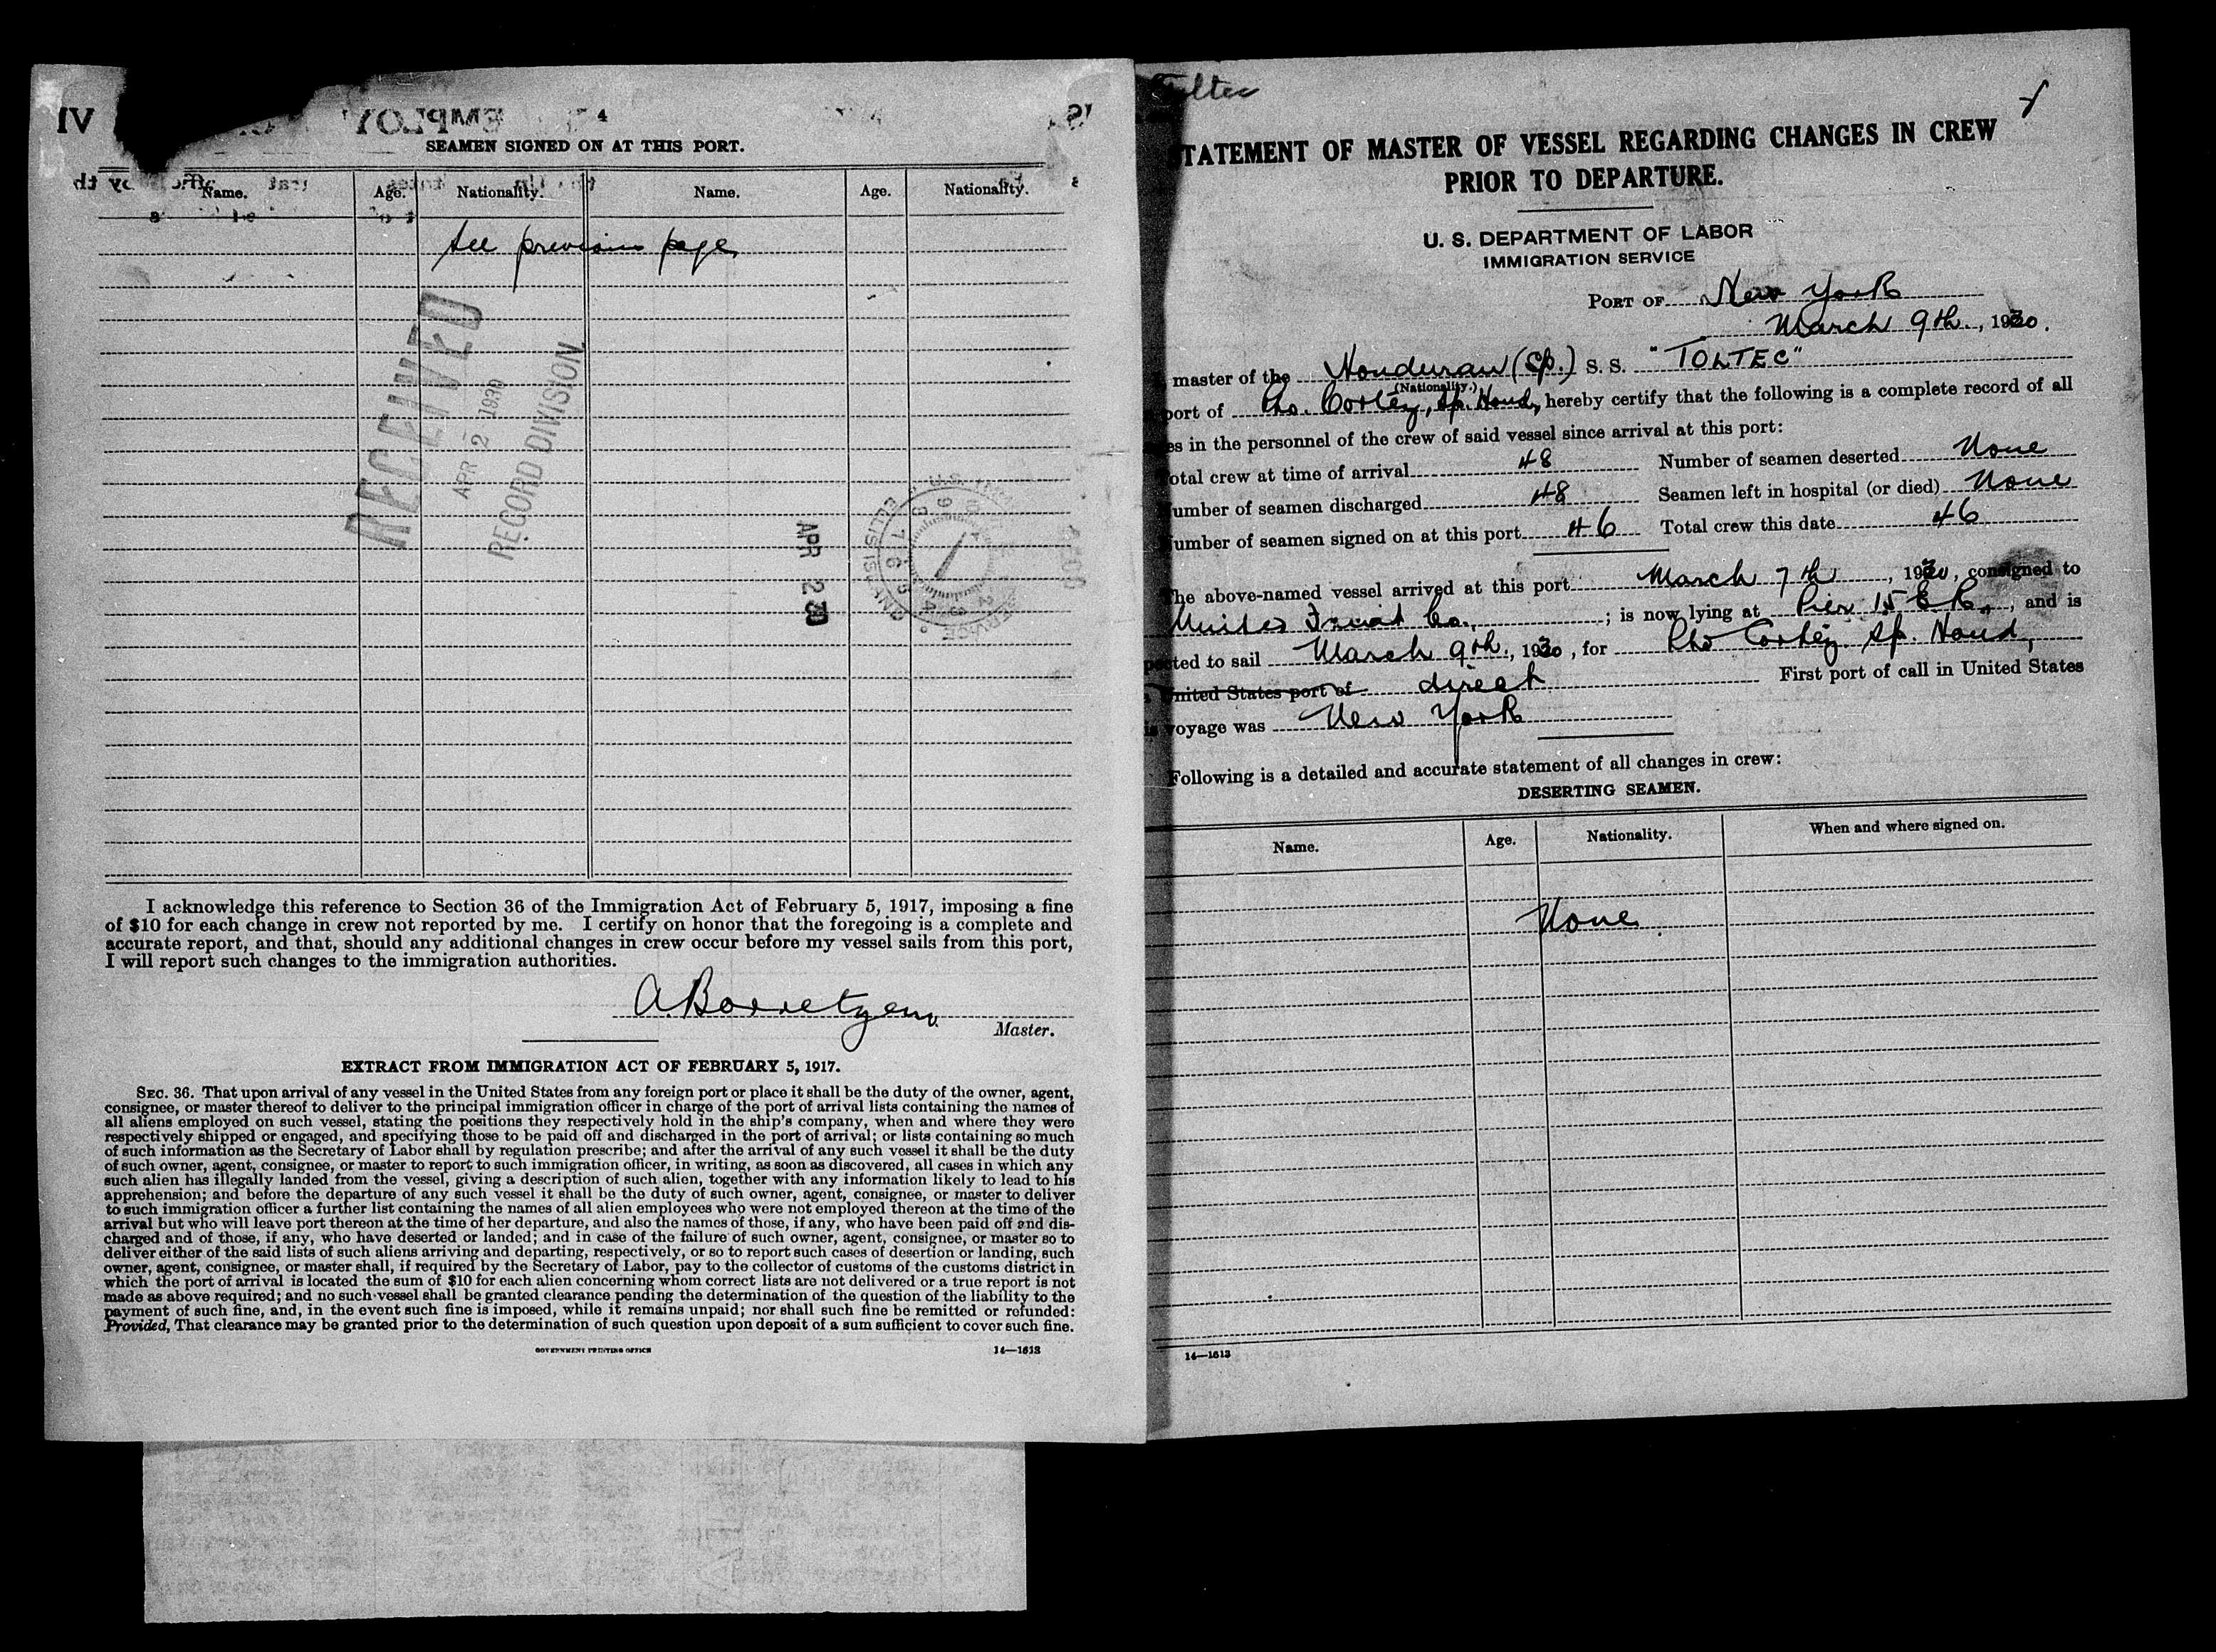 4
SEAMEN SIGNED ON AT THIS PORT.
Name. Age. Nationality. Name. Age. Nationality.
See previous page
RECEIVED
APR 2 1930
RECORD DIVISION
APR 2 30
I acknowledge this reference to Section 36 of the Immigration Act of February 5, 1917, imposing a fine
of $10 for each change in crew not reported by me. I certify on honor that the foregoing is a complete and
accurate report, and that, should any additional changes in crew occur before my vessel sails from this port,
I will report such changes to the immigration authorities.
Master.
EXTRACT FROM IMMIGRATION ACT OF FEBRUARY 5, 1917.
SEC. 36. That upon arrival of any vessel in the United States from any foreign port or place it shall be the duty of the owner, agent,
consignee, or master thereof to deliver to the principal immigration officer in charge of the port of arrival lists containing the names of
all aliens employed on such vessel, stating the positions they respectively hold in the ship's company, when and where they were
respectively shipped or engaged, and specifying those to be paid off and discharged in the port of arrival; or lists containing so much
of such information as the Secretary of Labor shall by regulation prescribe; and after the arrival of any such vessel it shall be the duty
of such owner, agent, consignee, or master to report to such immigration officer, in writing, as soon as discovered, all cases in which any
such alien has illegally landed from the vessel, giving a description of such alien, together with any information likely to lead to his
apprehension; and before the departure of any such vessel it shall be the duty of such owner, agent, consignee, or master to deliver
to such immigration officer a further list containing the names of all alien employees who were not employed thereon at the time of the
arrival but who will leave port thereon at the time of her departure, and also the names of those, if any, who have been paid off and dis-
charged and of those, if any, who have deserted or landed; and in case of the failure of such owner, agent, consignee, or master so to
deliver either of the said lists of such aliens arriving and departing, respectively, or so to report such cases of desertion or landing, such
owner, agent, consignee, or master shall, if required by the Secretary of Labor, pay to the collector of customs of the customs district in
which the port of arrival is located the sum of $10 for each alien concerning whom correct lists are not delivered or a true report is not
made as above required; and no such vessel shall be granted clearance pending the determination of the question of the liability to the
payment of such fine, and, in the event such fine is imposed, while it remains unpaid; nor shall such fine be remitted or refunded:
Provided, That clearance may be granted prior to the determination of such question upon deposit of a sum sufficient to cover such fine.
GOVERNMENT PRINTING OFFICE 14—1613
TATEMENT OF MASTER OF VESSEL REGARDING CHANGES IN CREW
PRIOR TO DEPARTURE.
U. S. DEPARTMENT OF LABOR
IMMIGRATION SERVICE
PORT OF New York
March 9th, 1930.
master of the Honduran (Sp.) S. S. "TOLTEC"
(Nationality.)
port of Pto. Cortéz, Sp. Hond, hereby certify that the following is a complete record of all
es in the personnel of the crew of said vessel since arrival at this port:
otal crew at time of arrival 48 Number of seamen deserted None
umber of seamen discharged 48 Seamen left in hospital (or died) None
umber of seamen signed on at this port 46 Total crew this date 46
he above-named vessel arrived at this port March 7th, 1930, consigned to
United Fruit Co., ; is now lying at Pier 15 E R., and is
cted to sail March 9th, 1930, for Pto Cortéz Sp. Hond,
United States port of direct First port of call in United States
voyage was New York
Following is a detailed and accurate statement of all changes in crew:
DESERTING SEAMEN.
Name. Age. Nationality. When and where signed on.
None
14—1613